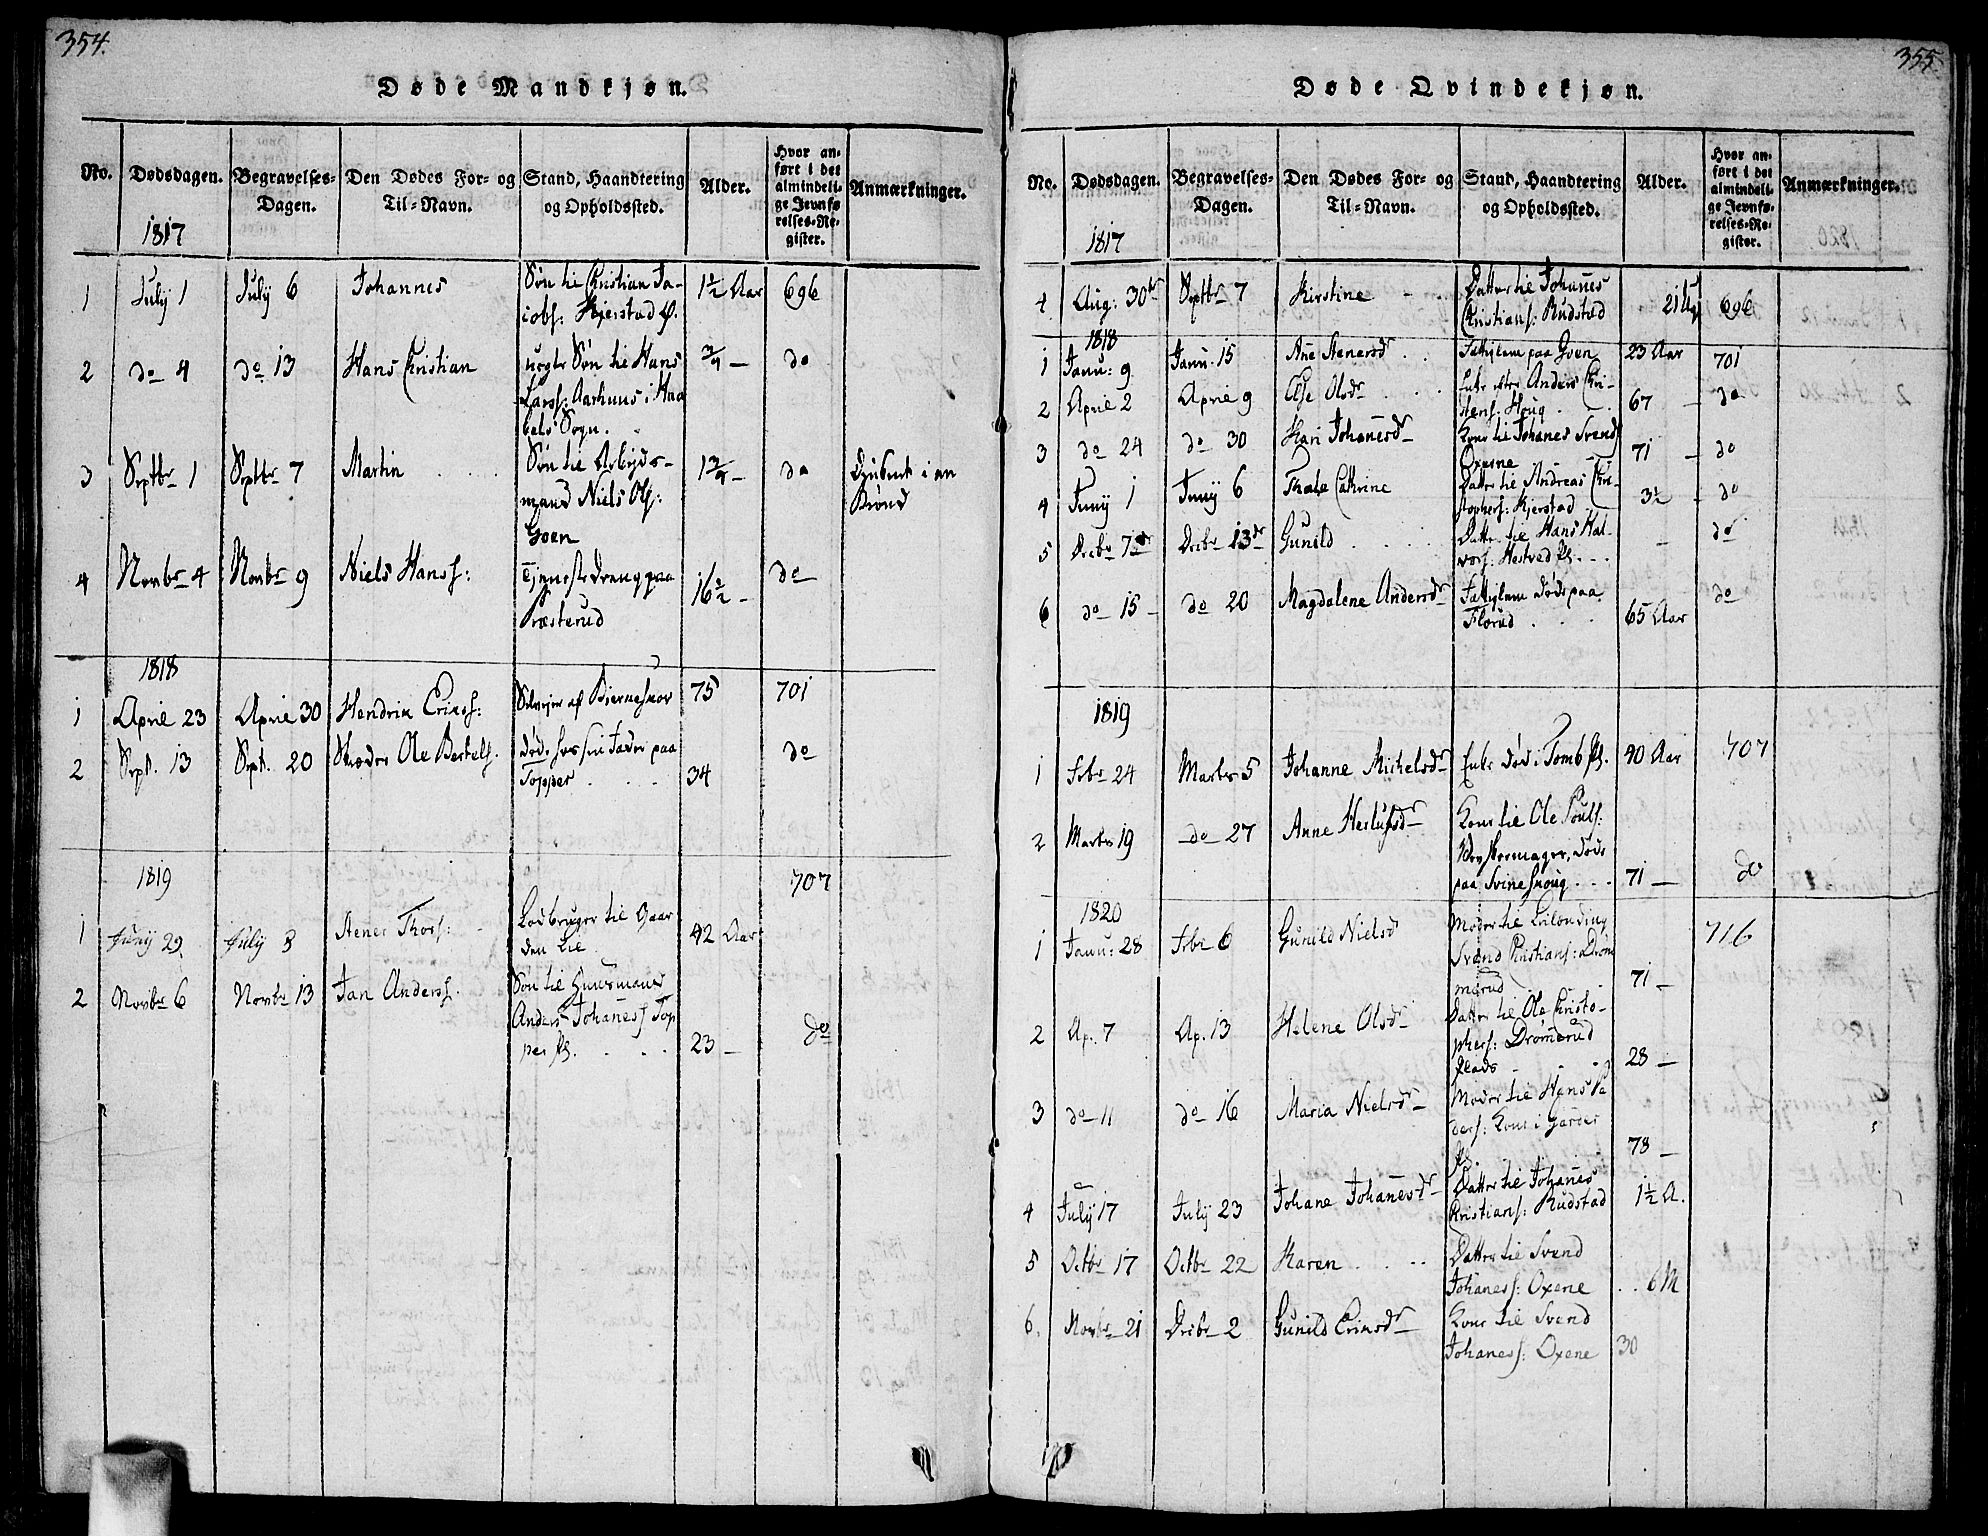 354.
Døde Mandkjøn.
No. Dødsdagen. Begravelses-Dagen. Den Dødes For- og Til-Navn. Stand, Haandtering og Opholdssted. Alder. Hvor anført i det almindelige Jevnførelses-Register. Anmærkninger.
1817
1 July 1 July 6 Johannes Søn til Christian Ja- 1½ Aar 696
cobs: Kjerstad
2 do 4 do 13 Hans Christian uegte Søn til Hans ¾ — do
Larss: Aarhuus i Haa
bøls Sogn.
3 Septbr 1 Septbr 7 Martin Søn til Arbejds- 1¾ — do i en
mand Niels Ols: Brønd
Goen
4 Novbr 4 Novbr 9 Niels Hanss: Tjenestedreng paa 16½ — do
Præsterud
1818
1 April 23 April 30 Hendrik Erikss: Selvejer af Bierneskov 75 701
2 Sept. 13 Sept. 20 Skræder Ole Bertels. døde hos sin Fader paa 34 do
Topper
1819 707
1 Juny 29 July 3 Stener Thors: Ledbruger til Gaar 42 Aar
den Lie
2 Novbr 6 Novbr 13 Jan Anders. Søn til Huusmand
Anders Johaness Top
per Pl. 23 — do
355.
Døde Qvindekjøn.
No. Dødsdagen. Begravelses-Dagen. Den Dødes For- og Til-Navn. Stand, Haandtering og Opholdssted. Alder. Hvor anført i det almindelige Jevnførelses-Register. Anmærkninger.
1817
4 Aug: 30te Septbr 7 Kirstine Datter til Johanes 21 Ug 696
Christians: Rudstad
1818
1 Janu: 9 Janu. 15 Ane Stenersdr Fattiglem paa Goen 23 Aar 701
2 April 2 April 9 Else Olsdr Enke efter Anders Chri- 67 — do
stens: Houg
3 do 24 do 30 Kari Johanesdr Kone til Johanes Svend 71 — do
Oxerne
4 Juny 1 Juny 6 Thale Cathrine Datter til Andreas Chri- 3½ — do
stophers: Kjerstad
5 Decbr 7de Decbr 13de Gunild Datter til Hans Hal- — do
vors: Hestved Pl.
6 do 15 do 20 Magdalene Andersdr Fattiglem døde paa 65 Aar do
Florud
1819
1 Febr 24 Marts 5 Johanne Mickelsdr Enke død i Tomb Pl. 40 Aar 707
2 Marts 19 do 27 Anne Herlufsdr Kone til Ole Pouls:
døde
paa Svineskoug 71 — do
1820
1 Janu: 28 Febr 6 Gunild Nielsd Moder til Leilænding 716
Svend Christians: Drøm
merud 71 —
2 Ap. 7 Ap. 13 Helene Olsdr Datter til Ole Christo-
phers: Drømerud
Plads 28 —
3 do 11 do 16 Maria Nielsdr Moder til Hans Pe
ders: Kone i Garder
Pl. 78 —
4 July 17 July 23 Johane Johanesdr Datter til Johanes 1½ A.
Christians: Rudstad
5 Octbr 17 Octbr 22 Karen Datter til Svend
Johaness: Oxene 6 M
6. Novbr 21 Decbr 2 Gunild Eriksdr Kone til Svend
Johaness: Oxene 30